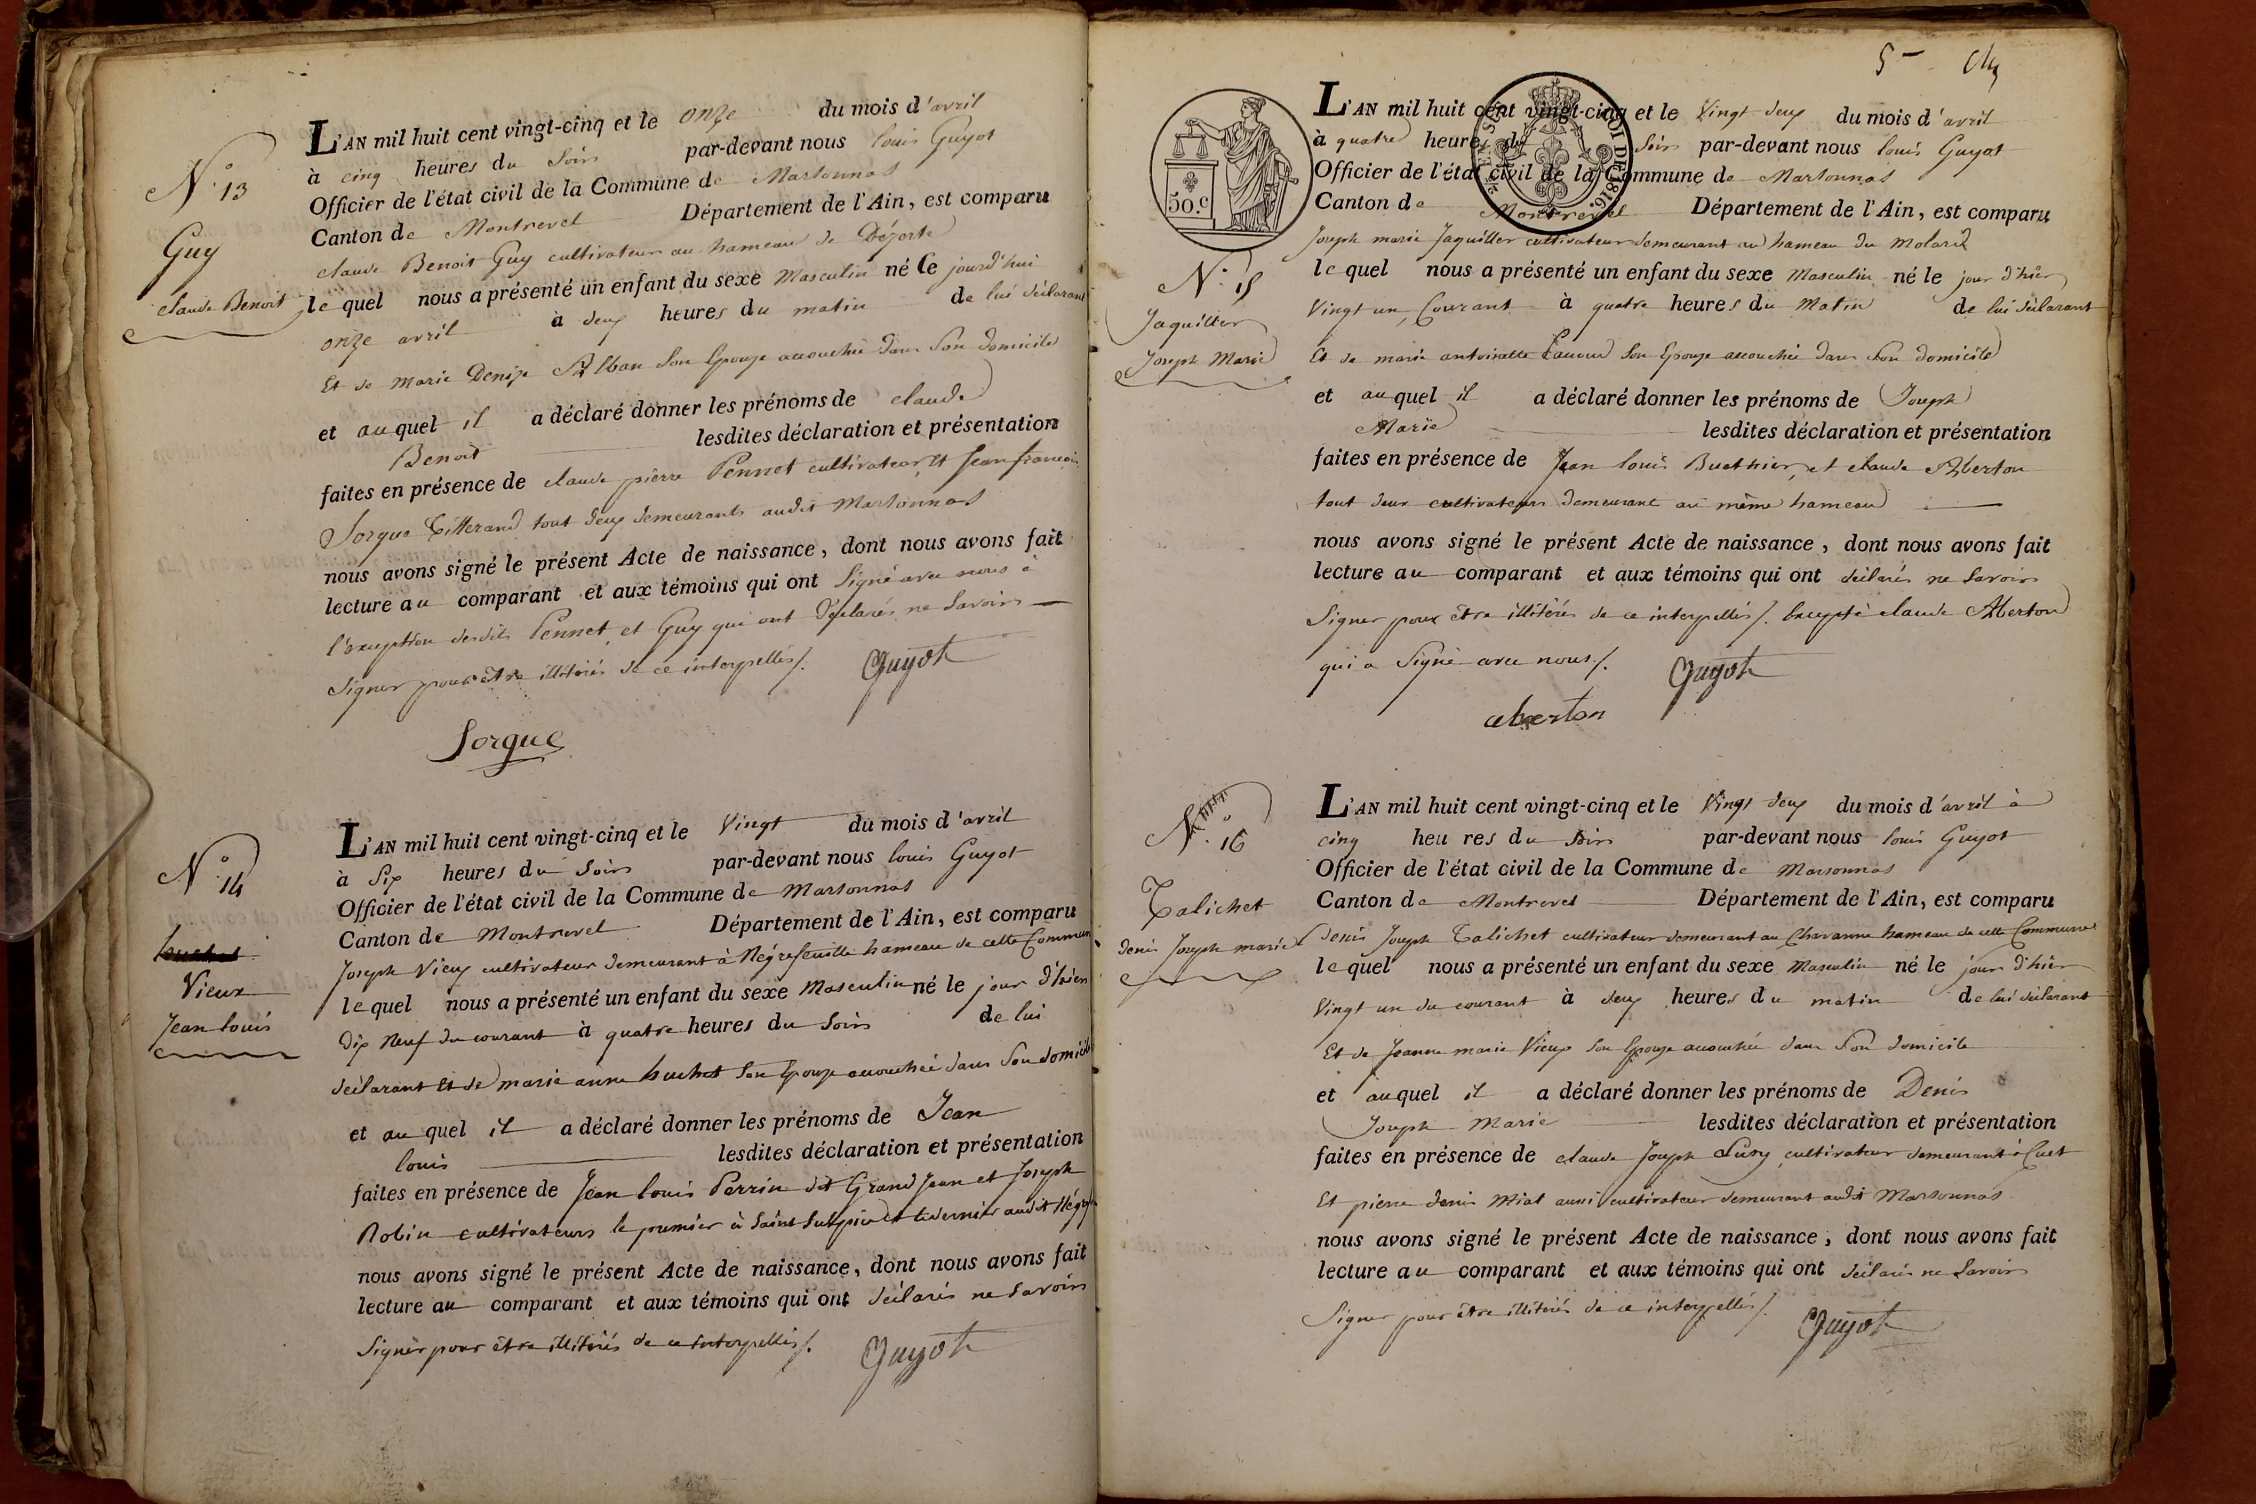 N° 13
Guy
claude Benoit
L'AN mil huit cent vingt-cinq et le onze du mois d'avril
à cinq heures du Soir par-devant nous louis Guyot
Officier de l'état civil de la Commune de Marsonnas
Canton de Montrevel Département de l'Ain, est comparu
claude Benoit Guy cultivateur au hameau de Dézerte
lequel nous a présenté un enfant du sexe Masculin né le jourd'hui
onze avril à deux heures du matin de lui déclarant
Et de Marie Denise Alban Son Epouse accouchée dans Son domicile
et auquel il a déclaré donner les prénoms de claude
Benoit lesdites déclaration et présentation
faites en présence de claude pierre Pennet cultivateur, et Jean françois
Sorgue Titterand tout deux demeurants audit Marsonnas
nous avons signé le présent Acte de naissance, dont nous avons fait
lecture au comparant et aux témoins qui ont Signé avec nous à
l'exception desdits Pennet et Guy qui ont Déclarés ne Savoir
Signer pour être illitérés de ce interpellés/. Guyot
Sorgue
N° 14
Vieux
Jean louis
L'AN mil huit cent vingt-cinq et le Vingt du mois d'avril
à Six heures du Soir par-devant nous louis Guyot
Officier de l'état civil de la Commune de Marsonnas
Canton de Montrevel Département de l'Ain, est comparu
Joseph Vieux cultivateur demeurant à Négrefeuille hameau de cette Commun
lequel nous a présenté un enfant du sexe Masculin né le jour d'hier
dix neuf du courant à quatre heures du Soir de lui
déclarant Et de marie anne buchet Son Epouse accouchée dans Son domicile
et auquel il a déclaré donner les prénoms de Jean
louis lesdites déclaration et présentation
faites en présence de Jean louis Perrin dit Grand Jean et Joseph
Robin cultivateurs le premier à Saint Sulpice et le dernier audit Négref
nous avons signé le présent Acte de naissance, dont nous avons fait
lecture au comparant et aux témoins qui ont déclarés ne Savoir
Signer pour être illitérés de ce interpellés/. Guyot
5
50.C
ROI DE 1816.
N° 15
Jaquiller
Joseph Marie
L'AN mil huit cent vingt-cinq et le Vingt deux du mois d'avril
à quatre heures du Soir par-devant nous louis Guyot
Officier de l'état civil de la Commune de Marsonnas
Canton de Montrevel Département de l'Ain, est comparu
Joseph marie Jaquiller cultivateur demeurant au hameau du Molard
lequel nous a présenté un enfant du sexe Masculin né le jour d'hier
Vingt un Courant à quatre heures du Matin de lui déclarant
Et de marie antoinette Son Epouse accouchée dans Son domicile
et auquel il a déclaré donner les prénoms de Joseph
Marie lesdites déclaration et présentation
faites en présence de Jean louis Buathier, et claude Alberton
tout deux cultivateurs demeurant au même hameau
nous avons signé le présent Acte de naissance, dont nous avons fait
lecture au comparant et aux témoins qui ont déclarés ne Savoir
Signer pour être illitérés de ce interpellés/. Excepté claude Alberton
qui a Signé avec nous/. Guyot
aberton
N° 16
Talichet
Denis Joseph marie
L'AN mil huit cent vingt-cinq et le Vingt deux du mois d'avril à
cinq heures du Soir par-devant nous louis Guyot
Officier de l'état civil de la Commune de Marsonnas
Canton de Montrevel Département de l'Ain, est comparu
Denis Joseph Talichet cultivateur demeurant au Chavanne hameau de cette Commune
lequel nous a présenté un enfant du sexe Masculin né le jour d'hier
Vingt un du courant à deux heures du matin de lui déclarant
Et de Jeanne marie Vieux Son Epouse accouchée dans Son domicile
et auquel il a déclaré donner les prénoms de Denis
Joseph Marie lesdites déclaration et présentation
faites en présence de claude Joseph cultivateur demeurant à Cuet
Et pierre denis Mial aussi cultivateur demeurant audit Marsonnas
nous avons signé le présent Acte de naissance, dont nous avons fait
lecture au comparant et aux témoins qui ont déclarés ne Savoir
Signer pour être illitérés de ce interpellés/. Guyot